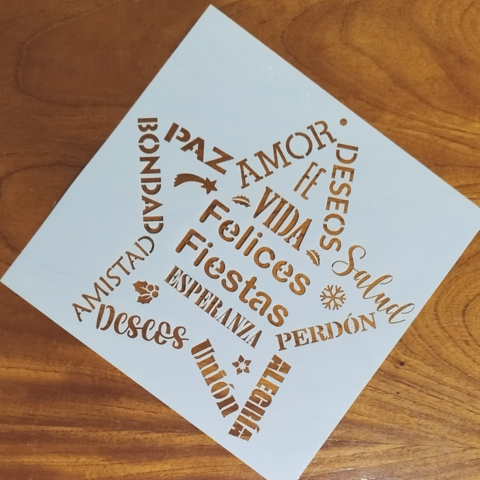 PAZ
AMOR
FE
DESEOS
BONIDAD
VIDA
Felices
Fiestas
Salud
AMISTAD
ESPERANZA
PERDÓN
Deseos
Unión
ALEGRÍA